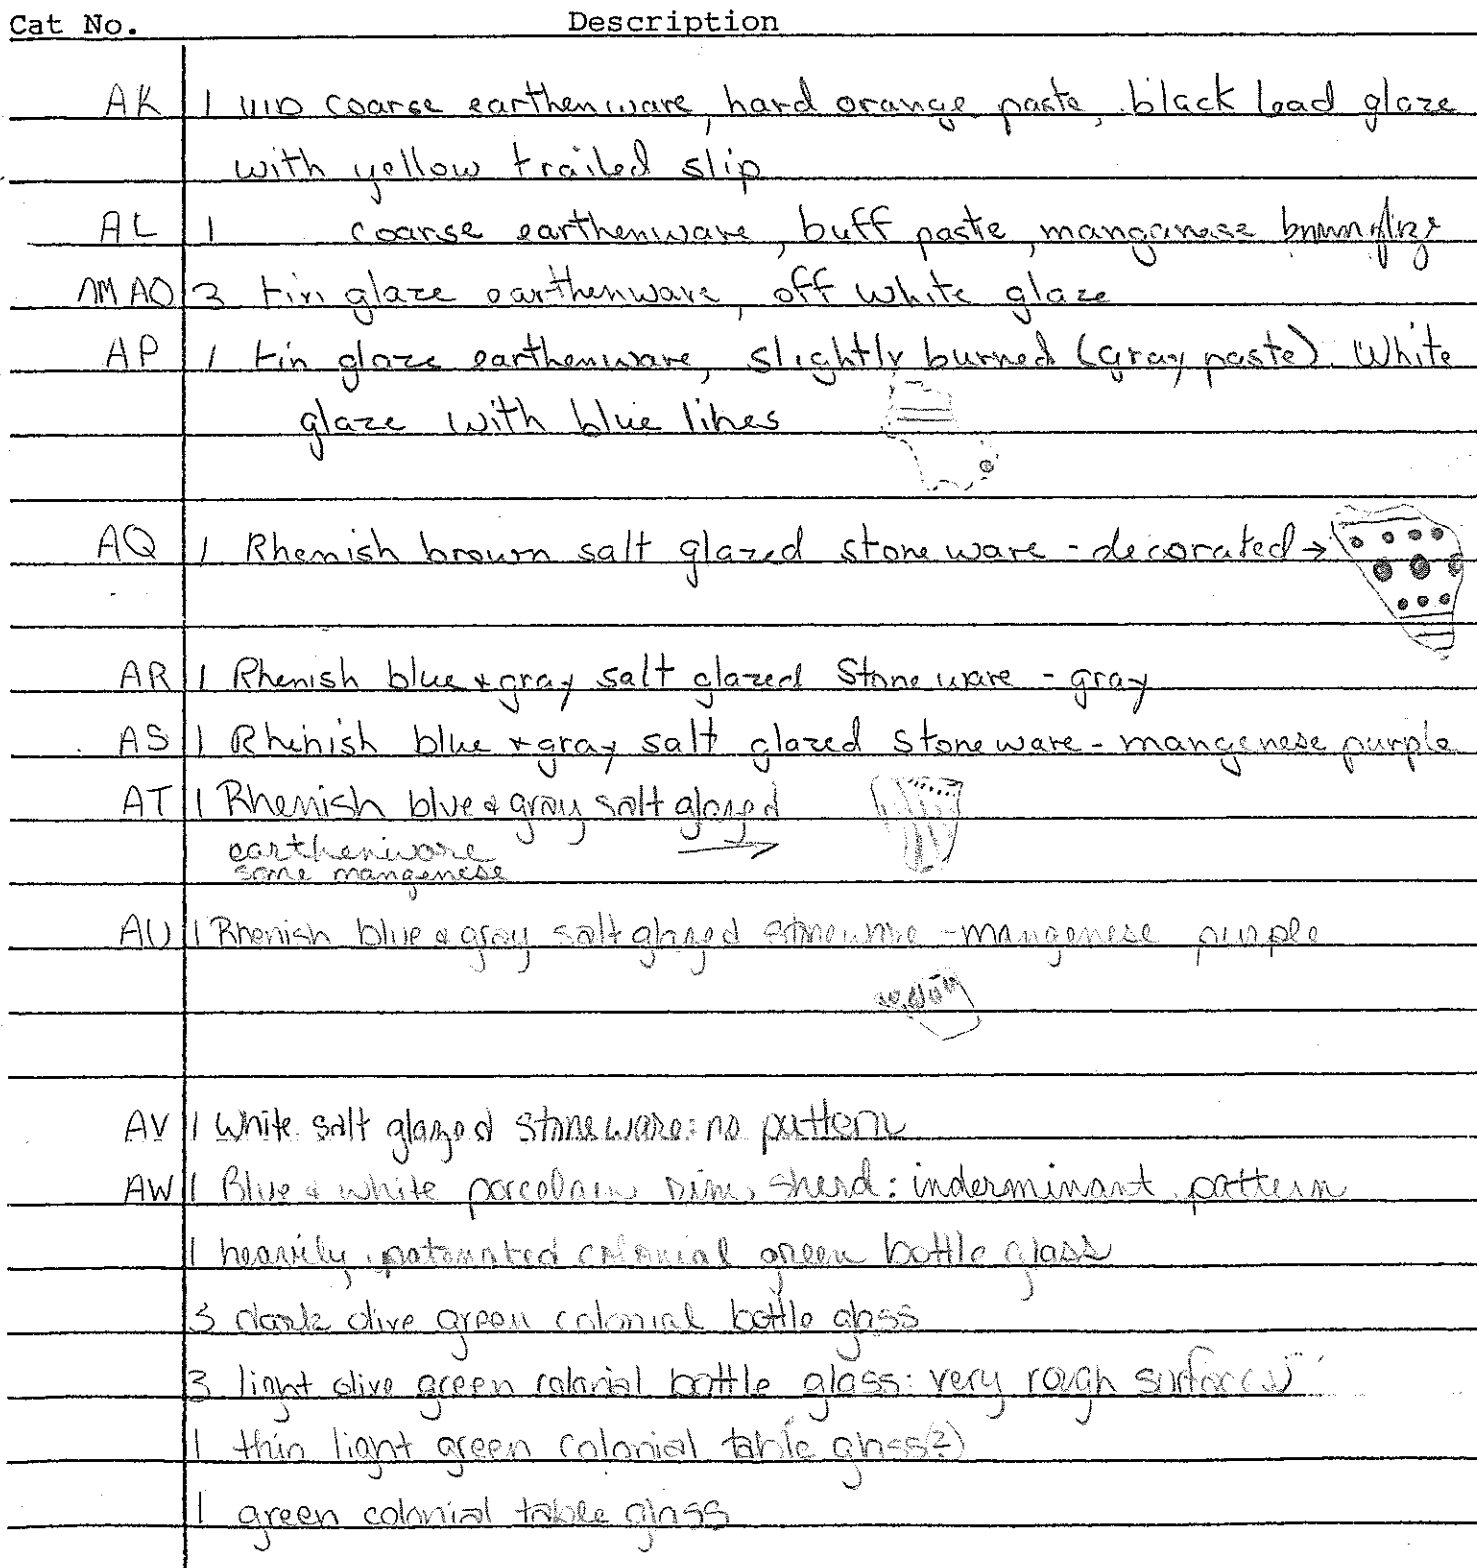 Cat No. Description
AK 1 UID coarse earthenware, hard orange paste, black lead glaze
with yellow trailed slip
AL 1 coarse earthenware, buff paste, manganese brown glaze
AO 3 tin glaze earthenware, off white glaze
AP 1 tin glaze earthenware, slightly burned (gray paste). White
glaze with blue lines
AQ 1 Rhenish brown salt glazed stoneware - decorated →
AR 1 Rhenish blue + gray salt glazed Stoneware - gray
AS 1 Rhinish blue + gray salt glazed stoneware - manganese purple
AT 1 Rhenish blue & gray salt glazed
earthenware →
some manganese
AU 1 Rhenish blue & gray salt glazed stoneware - manganese purple
AV 1 White salt glazed stoneware: no pattern
AW 1 Blue & white porcelain rim sherd: inderminant pattern
1 heavily patinated colonial green bottle glass
3 dark olive green colonial bottle glass
3 light olive green colonial bottle glass: very rough surface(s)
1 thin light green colonial table glass(?)
1 green colonial table glass